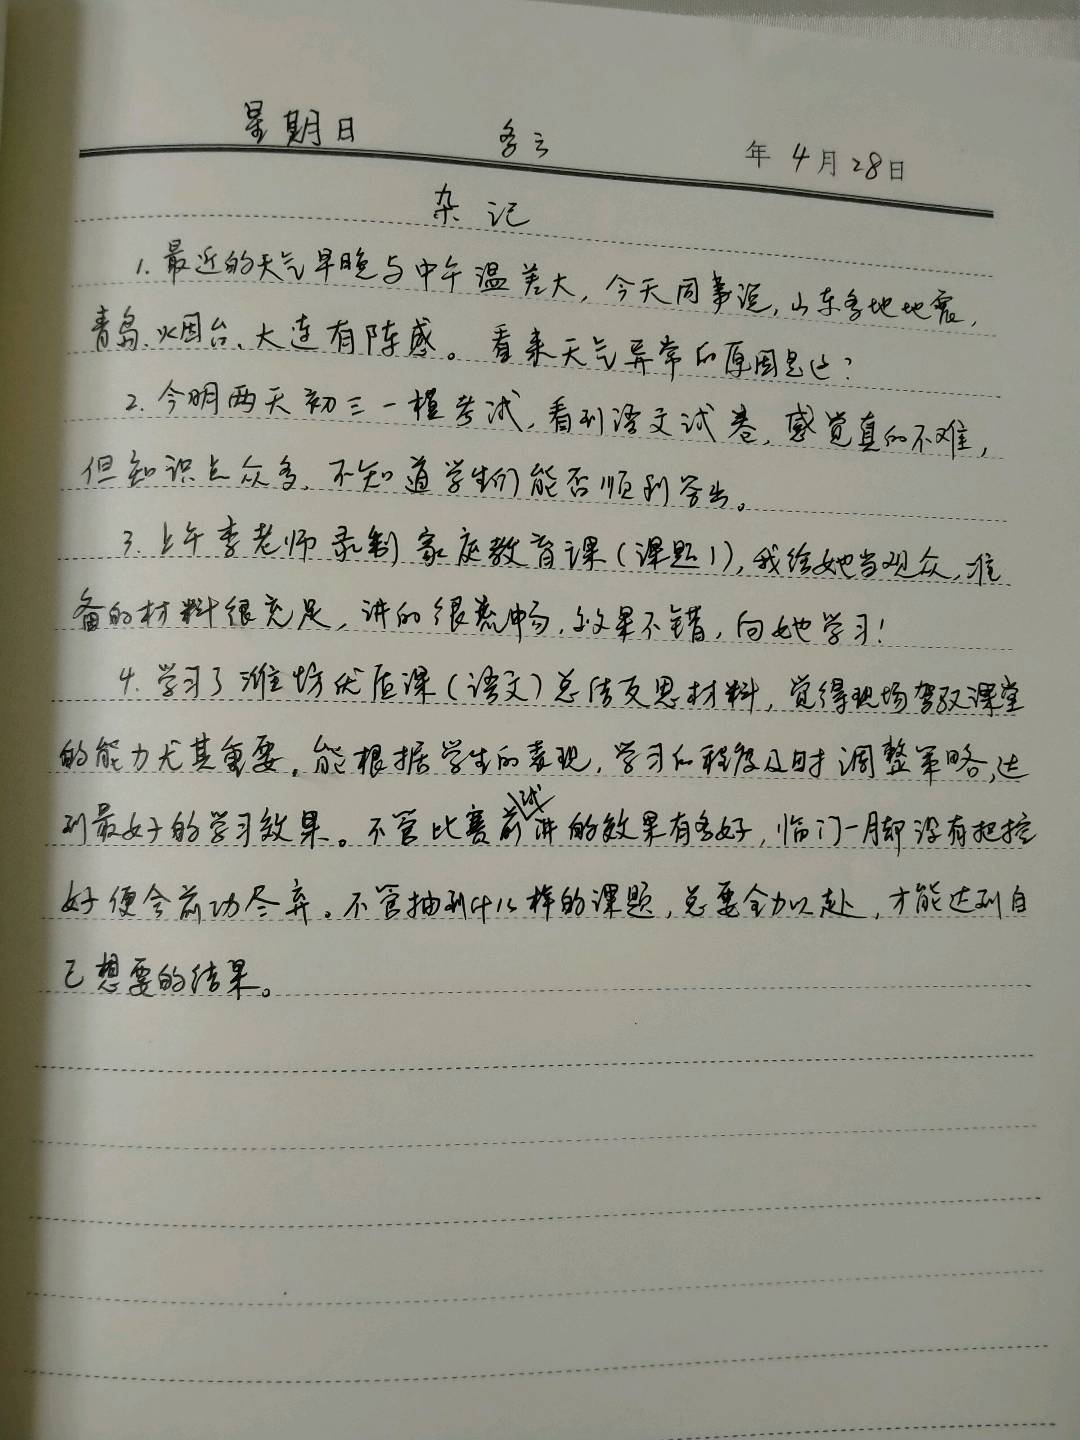 星期日 多云 年 4月28日
杂记
1. 最近的天气早晚与中午温差大，今天同事说，山东多地地震，
青岛、烟台、大连有阵感。看来天气异常的原因是这？
2. 今明两天初三一模考试，看到语文试卷，感觉真的不难，
但知识点众多，不知道学生们能否顺利答出。
3. 上午李老师录制家庭教育课（课题1），我给她当观众，准
备的材料很充足，讲的很流畅，效果不错，向她学习！
4. 学习了潍坊优质课（语文）总结反思材料，觉得现场驾驭课堂
的能力尤其重要。能根据学生的表现，学习的程度及时调整策略，达
到最好的学习效果。不管比赛前试讲的效果有多好，临门一脚没有把控
好便会前功尽弃。不管抽到什么样的课题，总要全力以赴，才能达到自
己想要的结果。